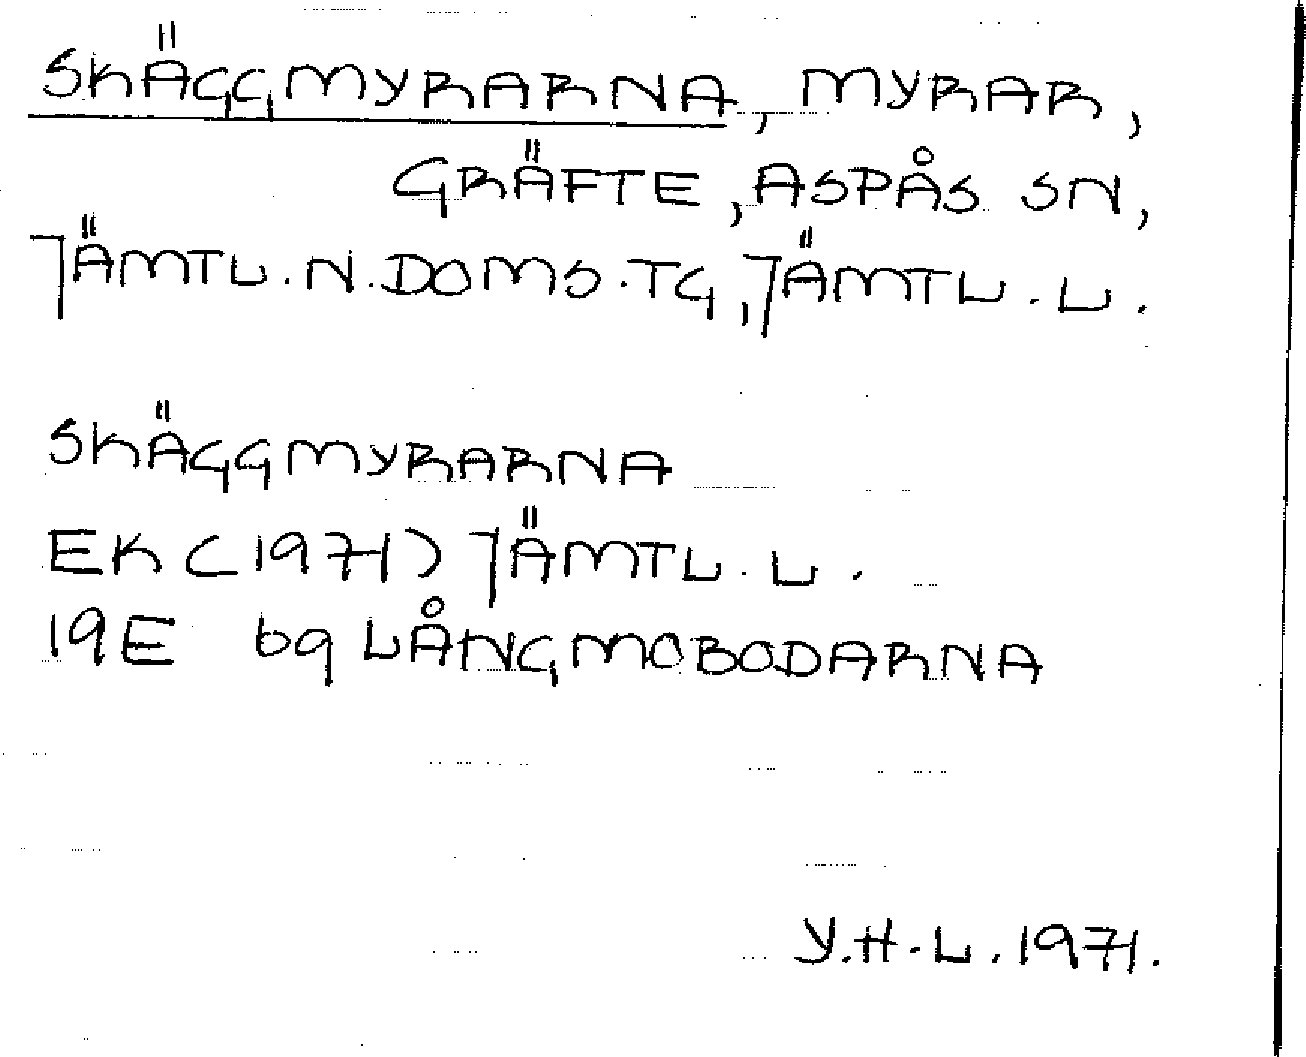 SKÄGGMYRARNA, MYRAR,
GRÄFTE, ASPÅS SN,
JÄMTL.N.DOMS.TG, JÄMTL.L.
SKÄGGMYRARNA
EK (1971) JÄMTL.L.
19E 6q LÅNGMOBODARNA
Y.H.L. 1971.